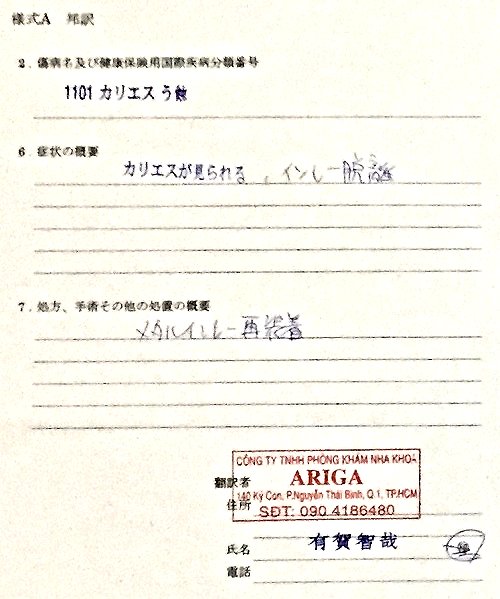 様式A 邦訳
2. 傷病名及び健康保険用国際疾病分類番号
1101 カリエス う蝕
6 症状の概要
カリエスが見られる 、インレー脱離
7. 処方、手術その他の処置の概要
メタルインレー再装着
CÔNG TY TNHH PHÒNG KHÁM NHA KHOA
翻訳者 ARIGA
住所 140 Ký Con, P.Nguyễn Thái Bình, Q.1, TP.HCM
SĐT: 090 4186480
氏名 有賀智哉
電話